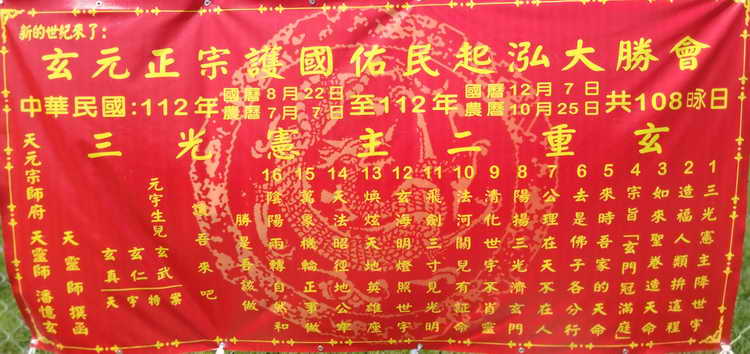 新的世紀來了:
玄元正宗護國佑民起泓大勝會
中華民國:112年國曆8月22日至112年國曆12月7日共108昹日
農曆7月7日 農曆10月25日
三光憲主二重玄
1 三光憲主降世宇
2 造福人類拚這程
3 如來聖卷造天命
4 宗旨「玄門冠滿庭」
5 來時吾家的天命
6 去是佛子各分行
7 公理在天不在人
8 陽揚三光濟玄門
9 清化世字不肯靈
10 法河關兒有証命
11 飛劍三寸見光明
12 玄海明燈照世宇
13 煥炫天地英雄座
14 天法昭徑地公牟
15 萬象機輪正事做
16 陰陽兩轉自然和
勝是吾該做
吾來吧
元宇生兒
玄武
玄仁
玄真
天字特業
天靈師 撰函
天元宗師府 天靈師 潘憶玄